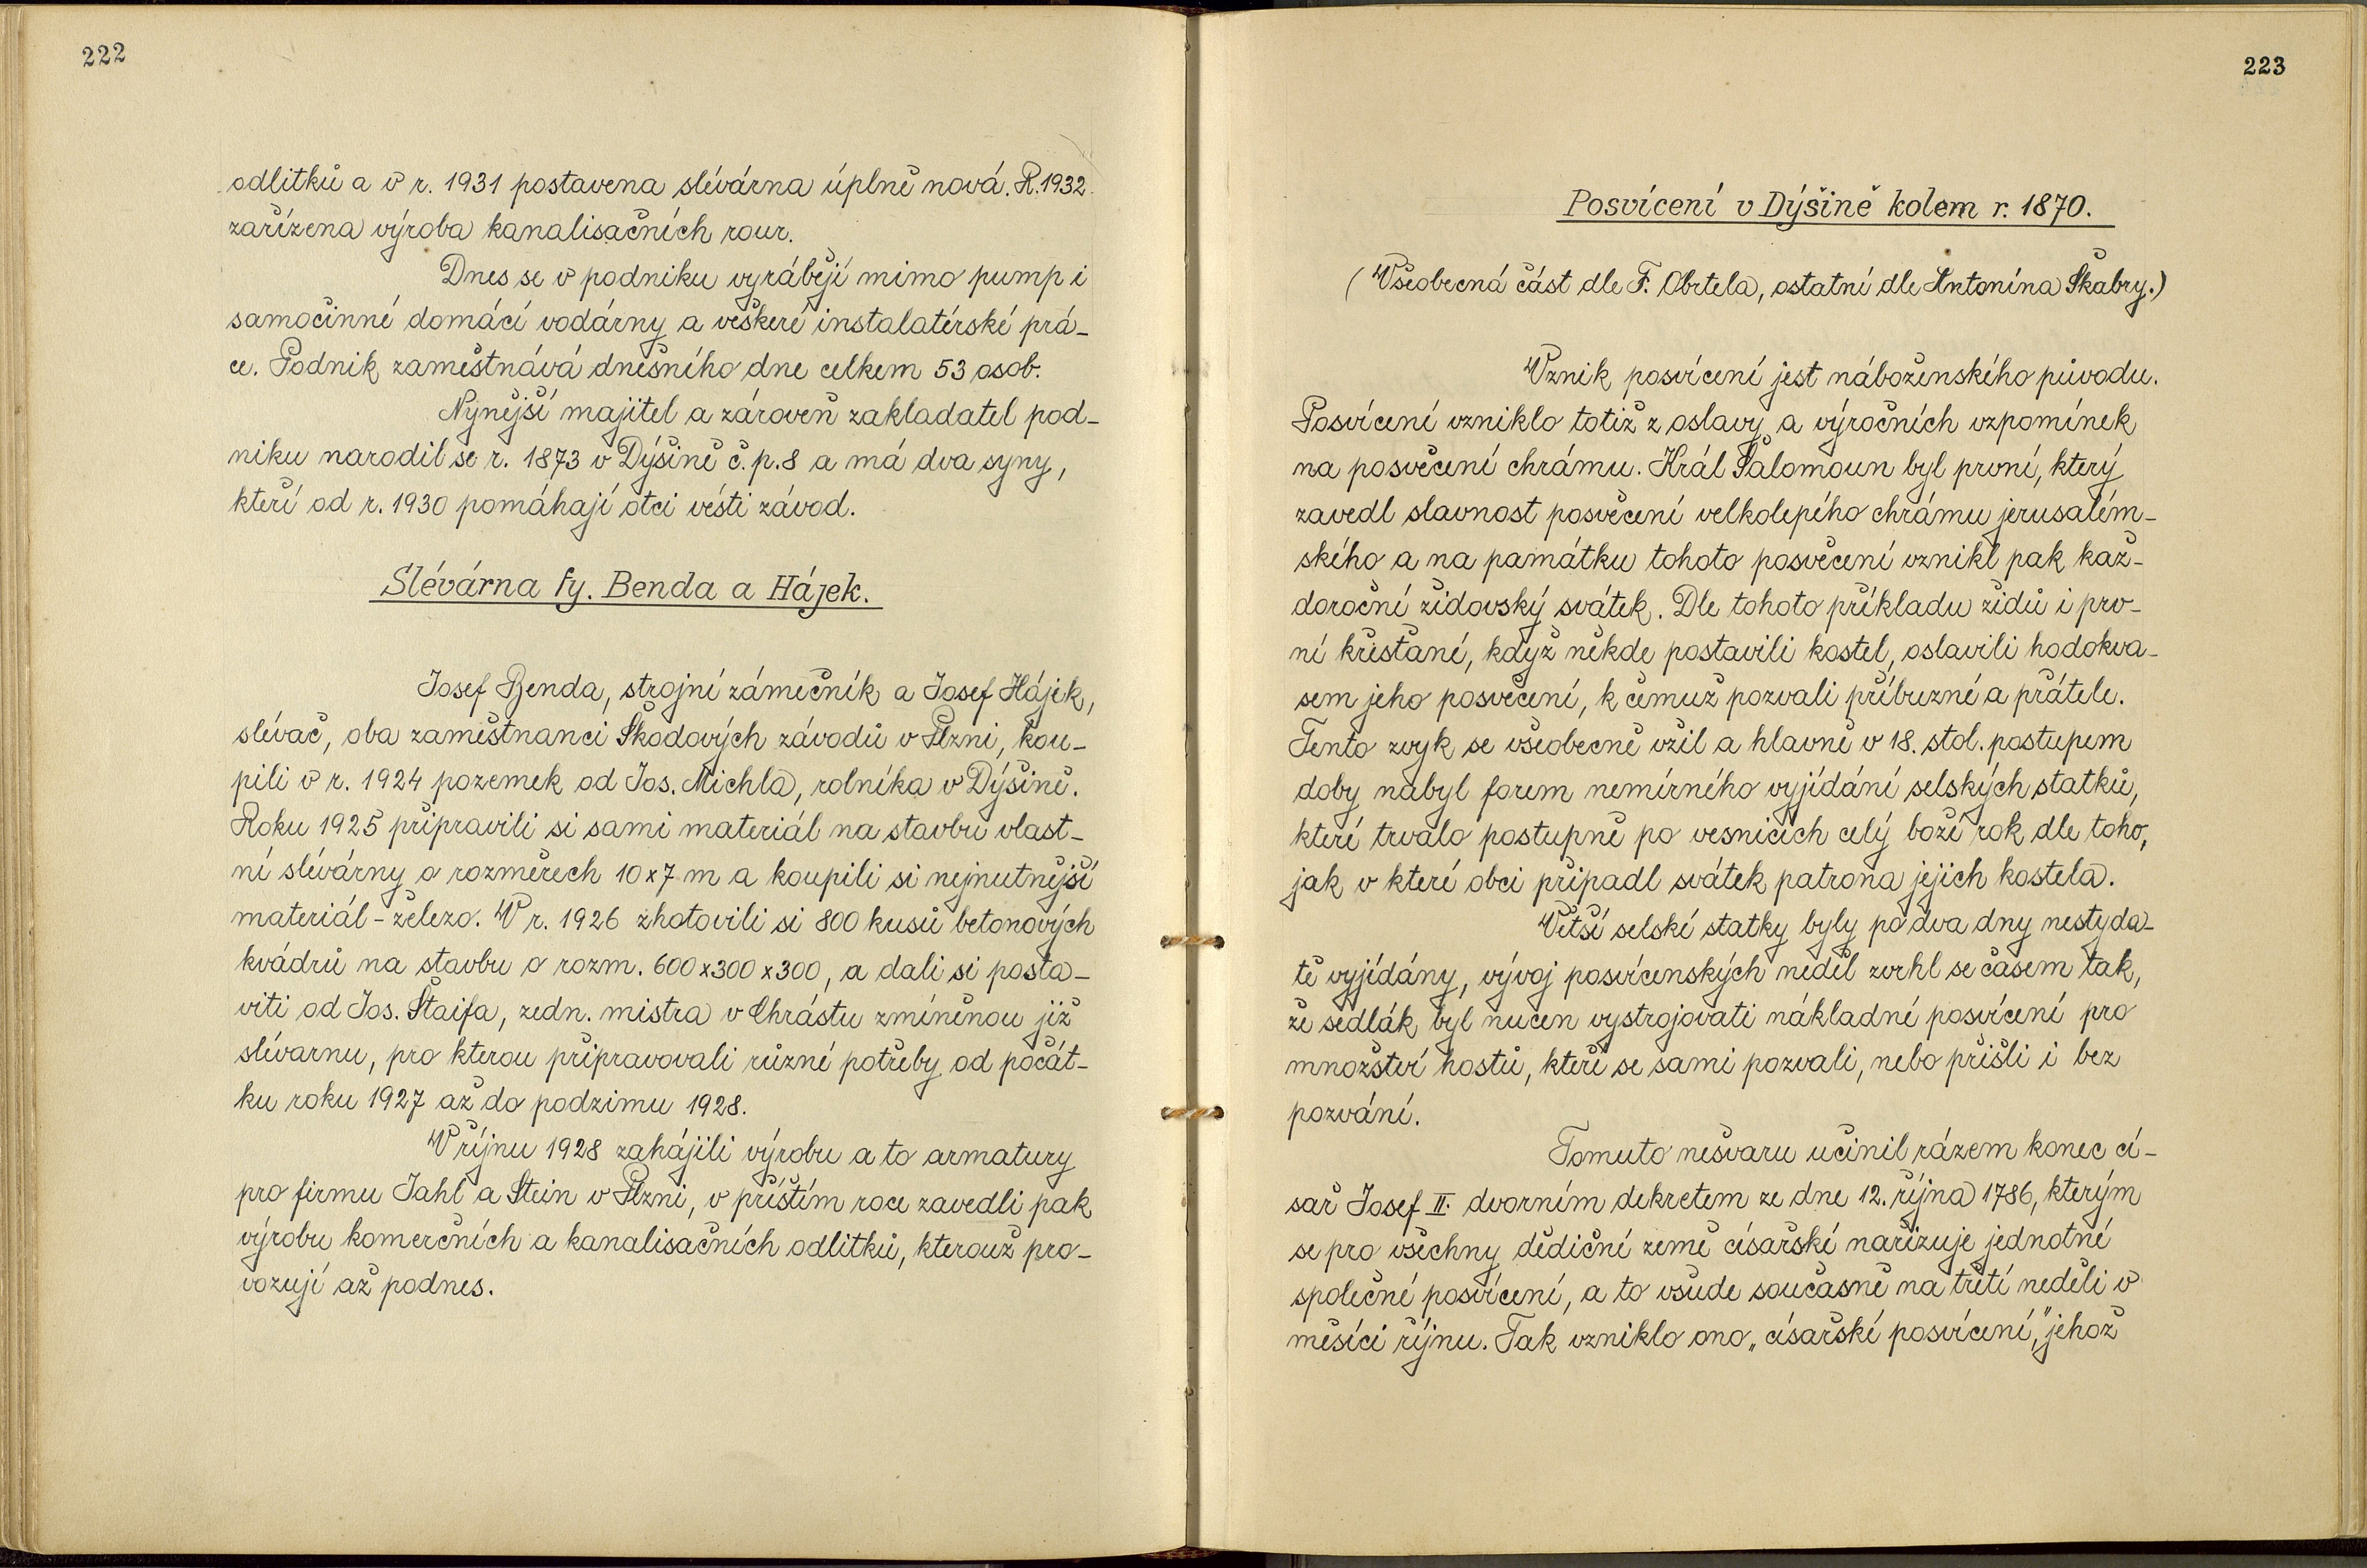 222
odlitků a v r. 1931 postavena slévárna úplně nová. R. 1932
zařízena výroba kanalisačních rour.
Dnes se v podniku vyrábějí mimo pump i
samočinné domácí vodárny a veškeré instalatérské prá-
ce. Podnik zaměstnává dnešního dne celkem 53 osob.
Nynější majitel a zároveň zakladatel pod-
niku narodil se r. 1873 v Dýšině č.p. 8 a má dva syny,
kteří od r. 1930 pomáhají otci vésti závod.
Slévárna fy. Benda a Hájek.
Josef Benda, strojní zámečník a Josef Hájek,
slévač, oba zaměstnanci Škodových závodů v Plzni, kou-
pili v r. 1924 pozemek od Jos. Michla, rolníka v Dýšině.
Roku 1925 připravili si sami materiál na stavbu vlast-
ní slévárny o rozměrech 10x7 m a koupili si nejnutnější
materiál - železo. V r. 1926 zhotovili si 800 kusů betonových
kvádrů na stavbu o rozm. 600x300x300, a dali si posta-
viti od Jos. Štaifa, zedn. mistra v Chrástu zmíněnou již
slévarnu, pro kterou připravovali různé potřeby od počát-
ku roku 1927 až do podzimu 1928.
V říjnu 1928 zahájili výrobu a to armatury
pro firmu Jahl a Stein v Plzni, v příštím roce zavedli pak
výrobu komerčních a kanalisačních odlitků, kterouž pro-
vozují až podnes.
223
Posvícení v Dýšině kolem r. 1870.
(Všeobecná část dle F. Obrtela, ostatní dle Antonína Škabry.)
Vznik posvícení jest náboženského původu.
Posvícení vzniklo totiž z oslavy a výročních vzpomínek
na posvěcení chrámu. Král Šalomoun byl první, který
zavedl slavnost posvěcení velkolepého chrámu jerusalém-
ského a na památku tohoto posvěcení vznikl pak kaž-
doroční židovský svátek. Dle tohoto příkladu židů i prv-
ní křisťané, když někde postavili kostel, oslavili hodokva-
sem jeho posvěcení, k čemuž pozvali příbuzné a přátele.
Tento zvyk se všeobecně vžil a hlavně v 18. stol. postupem
doby nabyl forem nemírného vyjídání selských statků,
které trvalo postupně po vesnicích celý boží rok dle toho,
jak v které obci připadl svátek patrona jejich kostela.
Větší selské statky byly po dva dny nestyda-
tě vyjídány, vývoj posvícenských neděl zvrhl se časem tak,
že sedlák byl nucen vystrojovati nákladné posvícení pro
množství hostů, kteří se sami pozvali, nebo přišli i bez
pozvání.
Tomuto nešvaru učinil rázem konec cí-
sař Josef II. dvorním dekretem ze dne 12. října 1786, kterým
se pro všechny dědičné země císařské nařizuje jednotné
společné posvícení, a to všude současně na třetí neděli v
měsíci říjnu. Tak vzniklo ono „císařské posvícení," jehož